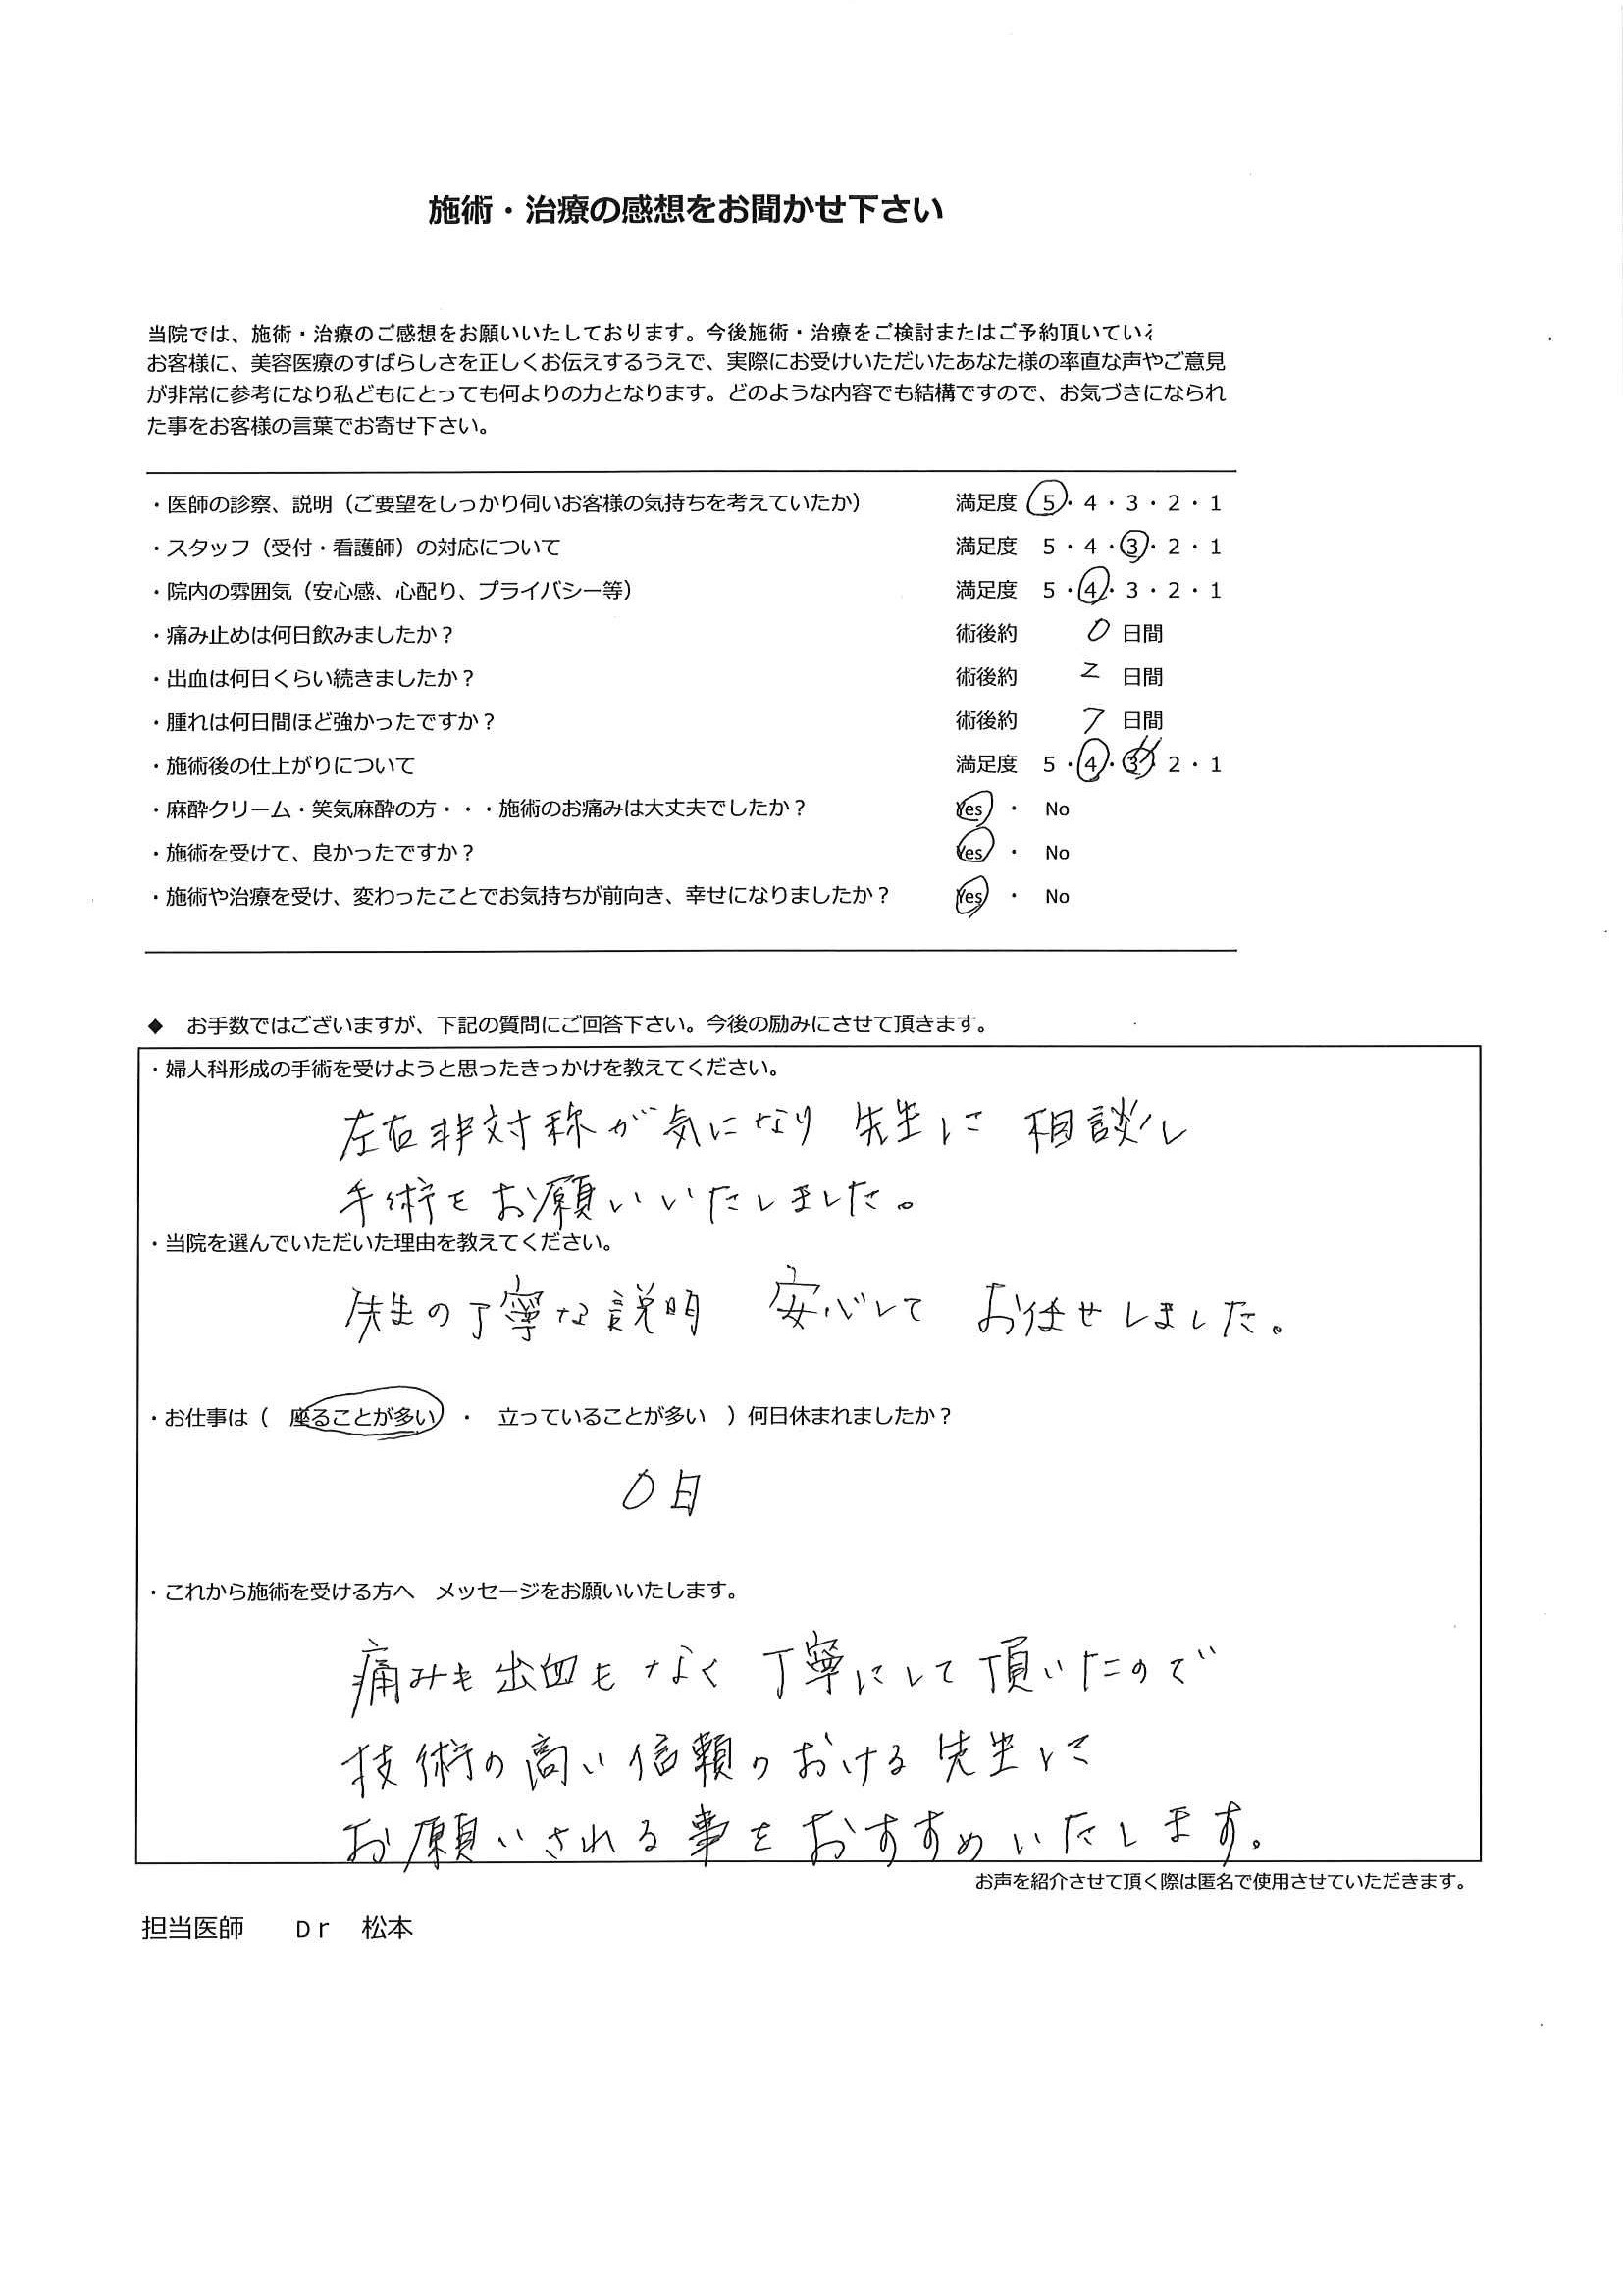 施術・治療の感想をお聞かせ下さい
当院では、施術・治療のご感想をお願いいたしております。今後施術・治療をご検討またはご予約頂いている
お客様に、美容医療のすばらしさを正しくお伝えするうえで、実際にお受けいただいたあなた様の率直な声やご意見
が非常に参考になり私どもにとっても何よりの力となります。どのような内容でも結構ですので、お気づきになられ
た事をお客様の言葉でお寄せ下さい。
・医師の診察、説明（ご要望をしっかり伺いお客様の気持ちを考えていたか） 満足度 5・4・3・2・1
・スタッフ（受付・看護師）の対応について 満足度 5・4・3・2・1
・院内の雰囲気（安心感、心配り、プライバシー等） 満足度 5・4・3・2・1
・痛み止めは何日飲みましたか？ 術後約 0 日間
・出血は何日くらい続きましたか？ 術後約 2 日間
・腫れは何日間ほど強かったですか？ 術後約 7 日間
・施術後の仕上がりについて 満足度 5・4・3・2・1
・麻酔クリーム・笑気麻酔の方・・・施術のお痛みは大丈夫でしたか？ Yes ・ No
・施術を受けて、良かったですか？ Yes ・ No
・施術や治療を受け、変わったことでお気持ちが前向き、幸せになりましたか？ Yes ・ No
◆ お手数ではございますが、下記の質問にご回答下さい。今後の励みにさせて頂きます。
・婦人科形成の手術を受けようと思ったきっかけを教えてください。
左右非対称が気になり 先生に 相談し
手術をお願いいたしました。
・当院を選んでいただいた理由を教えてください。
先生の丁寧な説明 安心して お任せしました。
・お仕事は（ 座ることが多い ・ 立っていることが多い ）何日休まれましたか？
0日
・これから施術を受ける方へ メッセージをお願いいたします。
痛みも出血もなく 丁寧にして頂いたので
技術の高い信頼のおける先生に
お願いされる事をおすすめいたします。
お声を紹介させて頂く際は匿名で使用させていただきます。
担当医師 Dr 松本